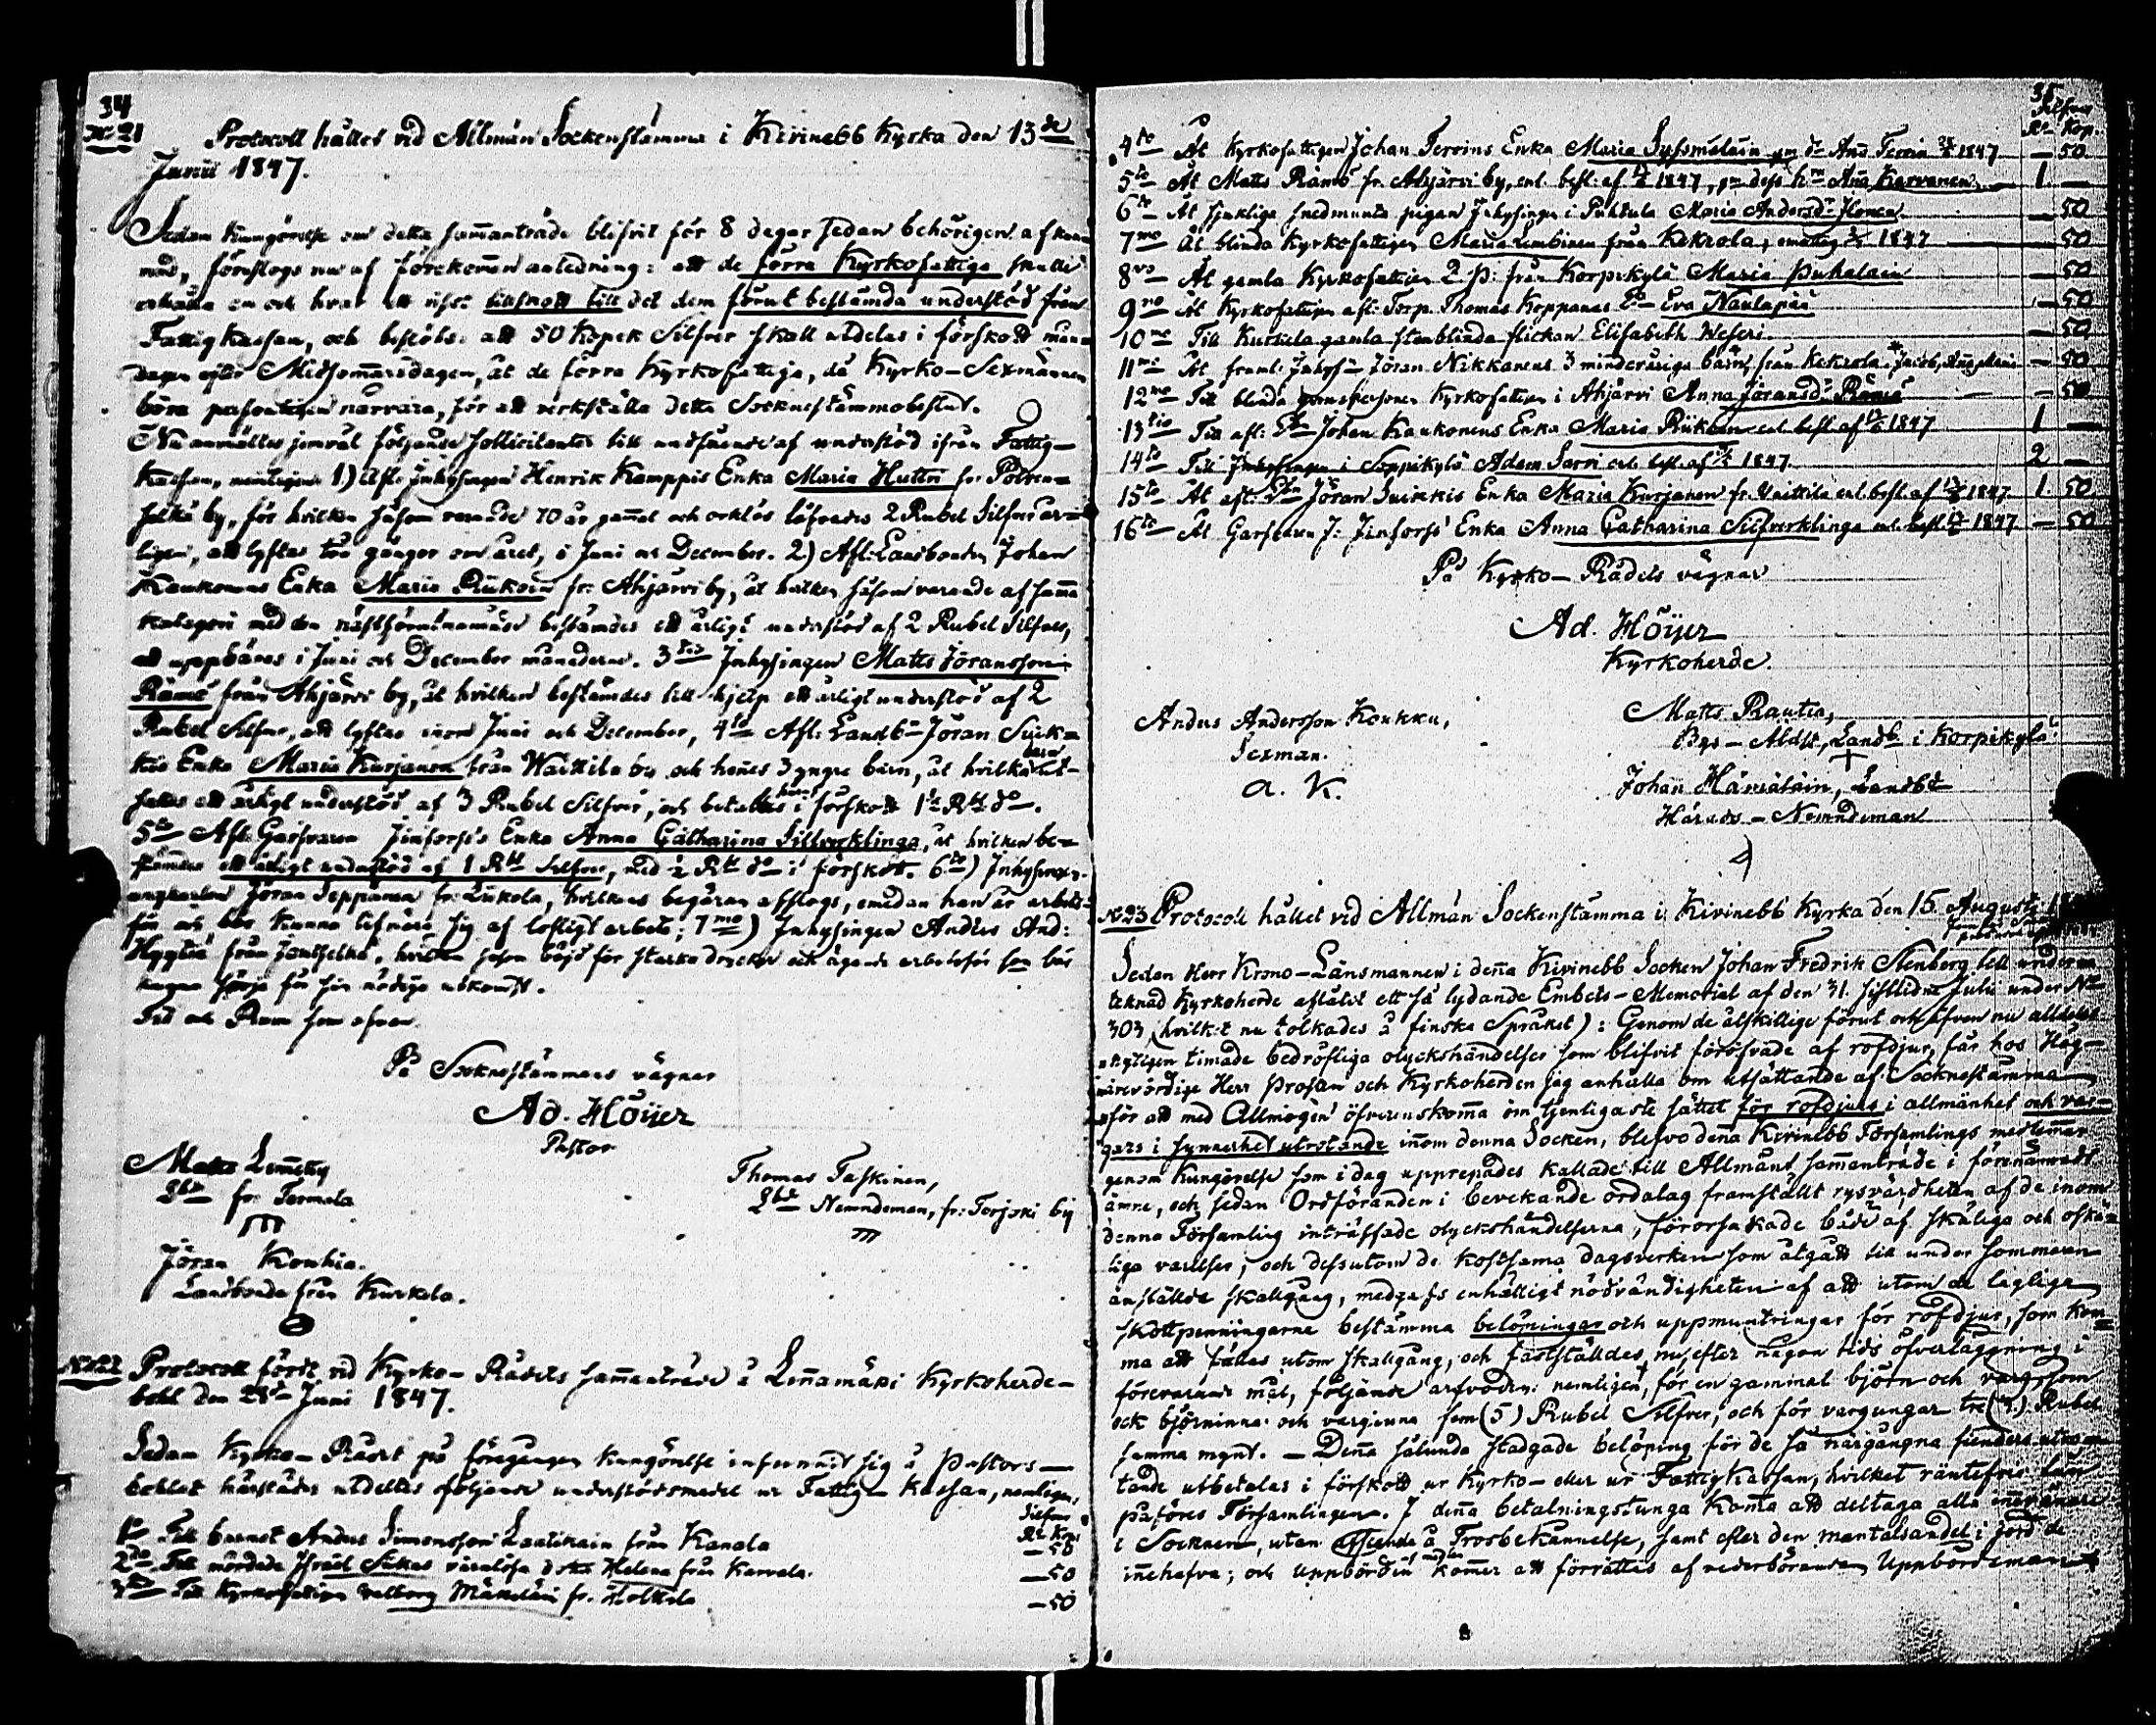 34
No 21
Protocoll hållet vid Allmän Sockenstämma i Kivinebb Kyrka den 13de
Junii 1847.
Sedan kungörelse om detta sammanträde blifvit för 8 dagar sedan behörigen afkun-
nad, föreslogs nu af förekommen anledning: att de förra Kyrkofattige skulle
erhålla en och hvar ett visst tillskott till det dem förut bestämda understöd från
Fattig Kassan, och beslöts: att 50 Kopek Silfver skall utdelas i förskott månda-
dagen efter Midsommarsdagen, åt de förra Kyrkofattiga, då Kyrko-Sexmännen
böra personligen närvara, för att verkställa detta Sockenstämmobeslut.
Nu anmältes jemväl följande sollicitanter till undfående af understöd ifrån Fattig-
Kassan, nemligen 1) Afl: Inhysingen Henrik Kamppis Enka Maria Huttu fr. Polven-
selkä by, för hvilken såsom varande 70 år gammal och orklös lofvades 2 Rubel Silfver år-
ligen, att lyftas två gånger om året, i Juni och December. 2) Afl: Landbonden Johan
Kaukonens Enka Maria Riikoin fr. Ahjärvi by, åt hvilken såsom varande af samma
kategori med den nästförutnämnde bestämdes ett årligt understöd af 2 Rubel Silfver,
att uppbäras i Juni och December månaderne. 3tio Inhysingen Matts Jöransson
Rämö från Ahjärvi by, åt hvilken bestämdes till hjelp ett årligt understöd af 2
Rubel Silfver, att lyftas inom Juni och December, 4to Afl: Landb: Jöran Suik-
kis Enka Maria Kurjanen från Waittila by och hennes 3 yngre barn, åt hvilka
ett årligt understöd af 3 Rubel Silfver, och betaltes i förskott 1½ Rbl do.
5to Afl: Garfvaren Jinforss's Enka Anna Catharina Silfverklinga, åt hvilken be-
stämdes ett årligt understöd af 1 Rbl Silfver, med ½ Rbl do i förskott. 6to) Inhysings-
ungkarlen Jöran Seppänen fr. Liikola, hvilkens begäran afslogs, emedan han är arbets-
för och bör kunna lifnära sig af lofligt arbete; 7mo) Inhysingen Anders And:
Hyytiä från Jäntselkä, hvilken såsom böjd för starka drycker och ägande arbetsför son bör
kunna sörja för sin nödiga utkomst.
Tid och Rum som ofvan.
På Sockenstämmans vägnar
Ad. Höijer
Pastor
Matts Lemetty
Lbde fr. Termola
Thomas Taskinen,
Lbde Nemndeman, fr. Torjoki by
Jöran Konhia.
Landbonde från Kurkela.
No 22
Protocoll fördt vid Kyrko-Rådets sammanträde å Linnamäki Kyrkoherde-
bohl den 28de Juni 1847.
Sedan Kyrko-Rådet på föregången kungörelse infunnit sig å Pastors-
bohlet härstädes utdeltes följande understödsmedel ur Fattig-Kassan, nemligen:
Silfver
Rbl Kop
1o Till barnet Anders Simonsson Lautikain från Kanala — 50
2do Till mördade Israël Sikas värnlösa dotter Helena från Karvala. — 50
3tio Till Kyrkofattiga Valborg Mäkeläin fr. Holttila — 50
35
Silfver
Rbl Kop.
4to Åt Kyrkofattigen Johan Tervins Enka Maria Syssmäläin 1847 — 50.
5to Åt Matts Rämö fr. Ahjärvi by, enl. besl. af 13/6 1847, Anna Karvanen 1. —
6to Åt sjukliga pigan Inhysingen i Puhtula Maria Andersdr Ilonen — 50
7mo Åt blinda Kyrkofattigen Maria Lembinen från Kekrola, 1847 — 50
8vo Åt gamla Kyrkofattigen från Korpikylä Maria Puhalain — 50
9no Åt Kyrkofattigen afl: Torp. Thomas Koppanas Eva Naulapää — 50
10mo Till Kurkela gamla stenblinda flickan Elisabeth Weseri — 50
11mo Åt framl: Inhys: Jöran Nikkanens 3 minderåriga barn, från Kekrola — 50
12mo Till blinda Kyrkofattigen i Ahjärvi Anna Jöransdr Rämö — 50
13tio Till afl: Lbn Johan Kaukonens Enka Maria Riikoin enl. besl. af 13/6 1847 1 —
14to Till Inhysingen i Seppikylä Adam Sarvi enl. besl. af 1847. 2 —
15to Åt afl: Lbn Jöran Suikkis Enka Maria Kurjanen fr. Vaittila enl. besl. af 13/6 1847 1. 50
16to Åt Garfvaren J: Jinforss' Enka Anna Catharina Silfverklinga enl. besl. 13/6 1847 — 50
På Kyrko-Rådets vägnar
Ad. Höijer
Kyrkoherde.
Anders Andersson Koukku,
Sexman.
A. K.
Matts Rautia,
Bys-Äldste, Landb. i Korpikylä.
Johan Hämäläin, Landbde
Härads-Nemndeman
No 23 Protocoll hållet vid Allmän Sockenstämma i Kivinebb Kyrka den 15. Augusti
Sedan Herr Krono-Länsmannen i denna Kivinebb Socken Johan Fredrik Stenberg till under-
teknad Kyrkoherde aflåtit ett så lydande Embets-Memorial af den 31. sistlidne Julii under No
303, (hvilket nu tolkades å finska Språket): Genom de åtskillige förut och äfven nu alldeles
nyligen timade bedröfliga olyckshändelser som blifvit föröfvade af rofdjur, får hos Hög-
ärevördige Herr Prosten och Kyrkoherden jag anhålla om utsättande af Sockenstämma
för att med Allmogen öfverenskomma om tjenligaste sättet för rofdjurs i allmänhet och var-
gars i synnerhet utrotande inom denna Socken, blefvo denna Kivinebb Församlings medlemmar
genom Kungörelse som i dag upprepades kallade till Allmänt sammanträde i förenämnde
ämne, och sedan Ordföranden i bevekande ordalag framställt rysvärdheten af de inom
denna Församling inträffade olyckshändelserna, förorsakade både af skäliga och oskä-
liga varelser, och dessutom de kostsamma dagsverken som åtgått till under sommaren
anställde skallgång, medgafs enhälligt nödvändigheten af att utom de laglige
skottpenningarne bestämma belöningar och uppmuntringar för rofdjur, som kom-
ma att fällas utom skallgång, och fastställdes nu, efter någon tids öfverläggning i
förevarande mål, följande arfvoden: nemligen, för en gammal björn och varg, som
ock björninna och varginna fem (5) Rubel Silfver, och för vargungar tre (3) Rubel
samma mynt. — Denna sålunda stadgade belöning för de så närgångna fienders utro-
tande utbetalas i förskott ur Kyrko- eller ur Fattig Kassan, hvilket räntefria lån
påföres Församlingen. I denna betalningstunga komma att deltaga alla innevånare
i Socknen, utan afseende å Trosbekännelse, samt efter den mantalsandel i jord de
innehafva; och Uppbörden kommer att förrättas af vederbörande Uppbördsman